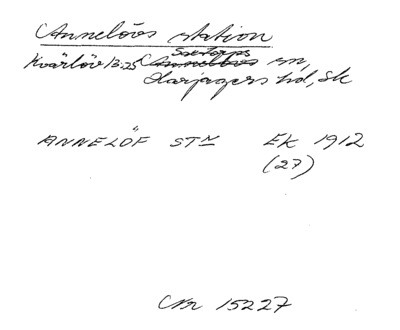 Annelövs station
Saxtorps
Kvärlöv 13:25 Annelövs sn,
Harjagers hd, Sk
ANNELÖF STN EK 1912
(27)
CNr 15227